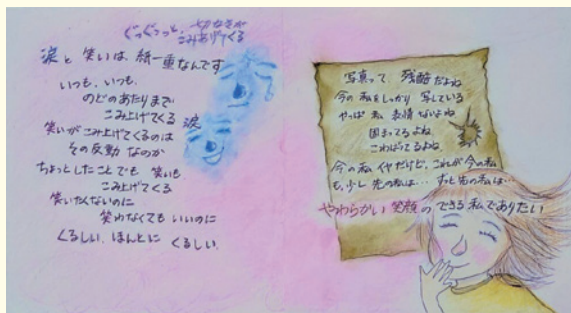 ぐっぐっっと、切なさが
こみあげてくる
涙と笑いは、紙一重なんです
いつも、いつも、
のどのあたりまで
こみ上げてくる 涙
笑いがこみ上げてくるのは
その反動なのか
ちょっとしたことでも 笑いも
こみ上げてくる
笑いたくないのに
笑わなくてもいいのに
くるしい、ほんとに くるしい。
写真って、残酷だよね
今の私をしっかり写している
やっぱ私 表情ないよね
固まってるよね
こわばってるよね
今の私イヤだけど、これが今の私
も少し先の私は…ずっと先の私は…
やわらかい笑顔のできる私でありたい